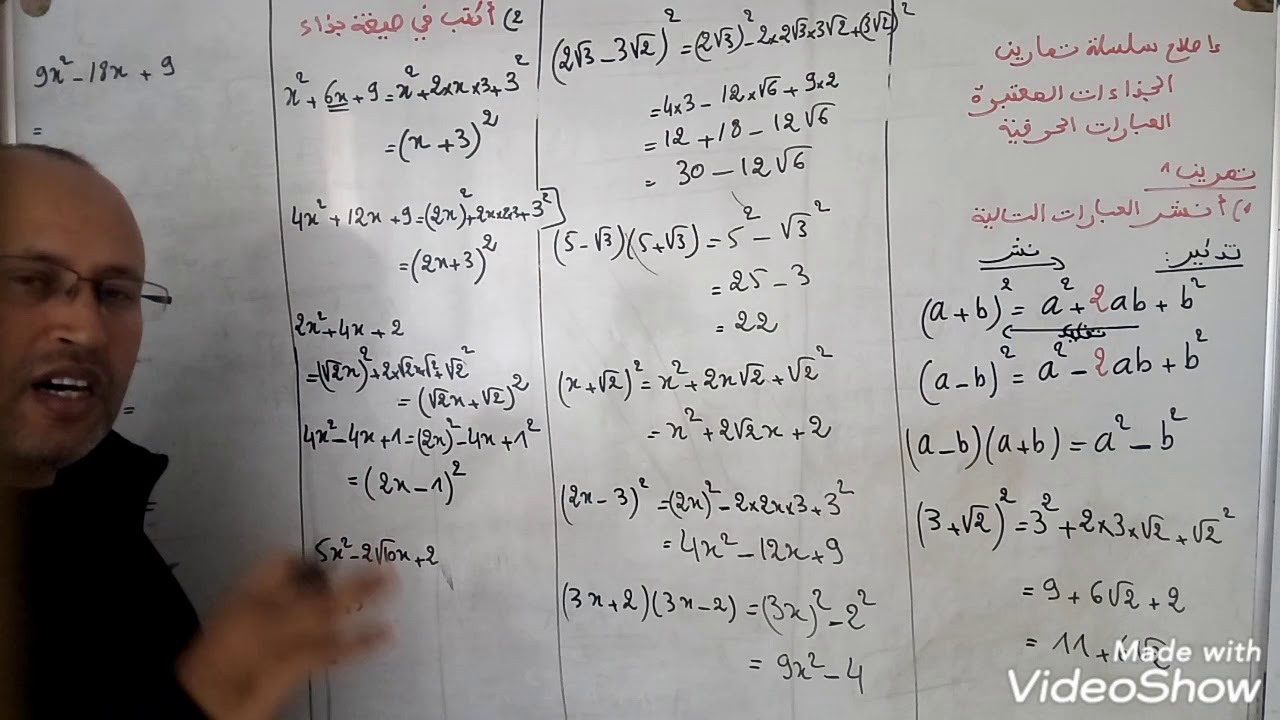 إصلاح سلسلة تمارين
الجذاءات المعتبرة
العبارات الحرفية
تمرين 1
1) أنشر العبارات التالية
تذكير: نشر
(a+b)² = a² + 2ab + b²
تفكيك
(a-b)² = a² - 2ab + b²
(a-b)(a+b) = a² - b²
(3+√2)² = 3² + 2×3×√2 + √2²
= 9 + 6√2 + 2
= 11 +
(2√3 - 3√2)² = (2√3)² - 2×2√3×3√2 + (3√2)²
= 4×3 - 12×√6 + 9×2
= 12 + 18 - 12√6
= 30 - 12√6
(5-√3)(5+√3) = 5² - √3²
= 25 - 3
= 22
(x+√2)² = x² + 2x√2 + √2²
= x² + 2√2x + 2
(2x-3)² = (2x)² - 2×2x×3 + 3²
= 4x² - 12x + 9
(3x+2)(3x-2) = (3x)² - 2²
= 9x² - 4
2) أكتب في صيغة جذاء
x² + 6x + 9 = x² + 2×x×3 + 3²
= (x+3)²
4x² + 12x + 9 = (2x)² + 2×2x×3 + 3²
= (2x+3)²
2x² + 4x + 2
= (√2x)² + 2×√2x×√2 + √2²
= (√2x + √2)²
4x² - 4x + 1 = (2x)² - 4x + 1²
= (2x-1)²
5x² - 2√10x + 2
9x² - 18x + 9
=
=
=
=
Made with
VideoShow